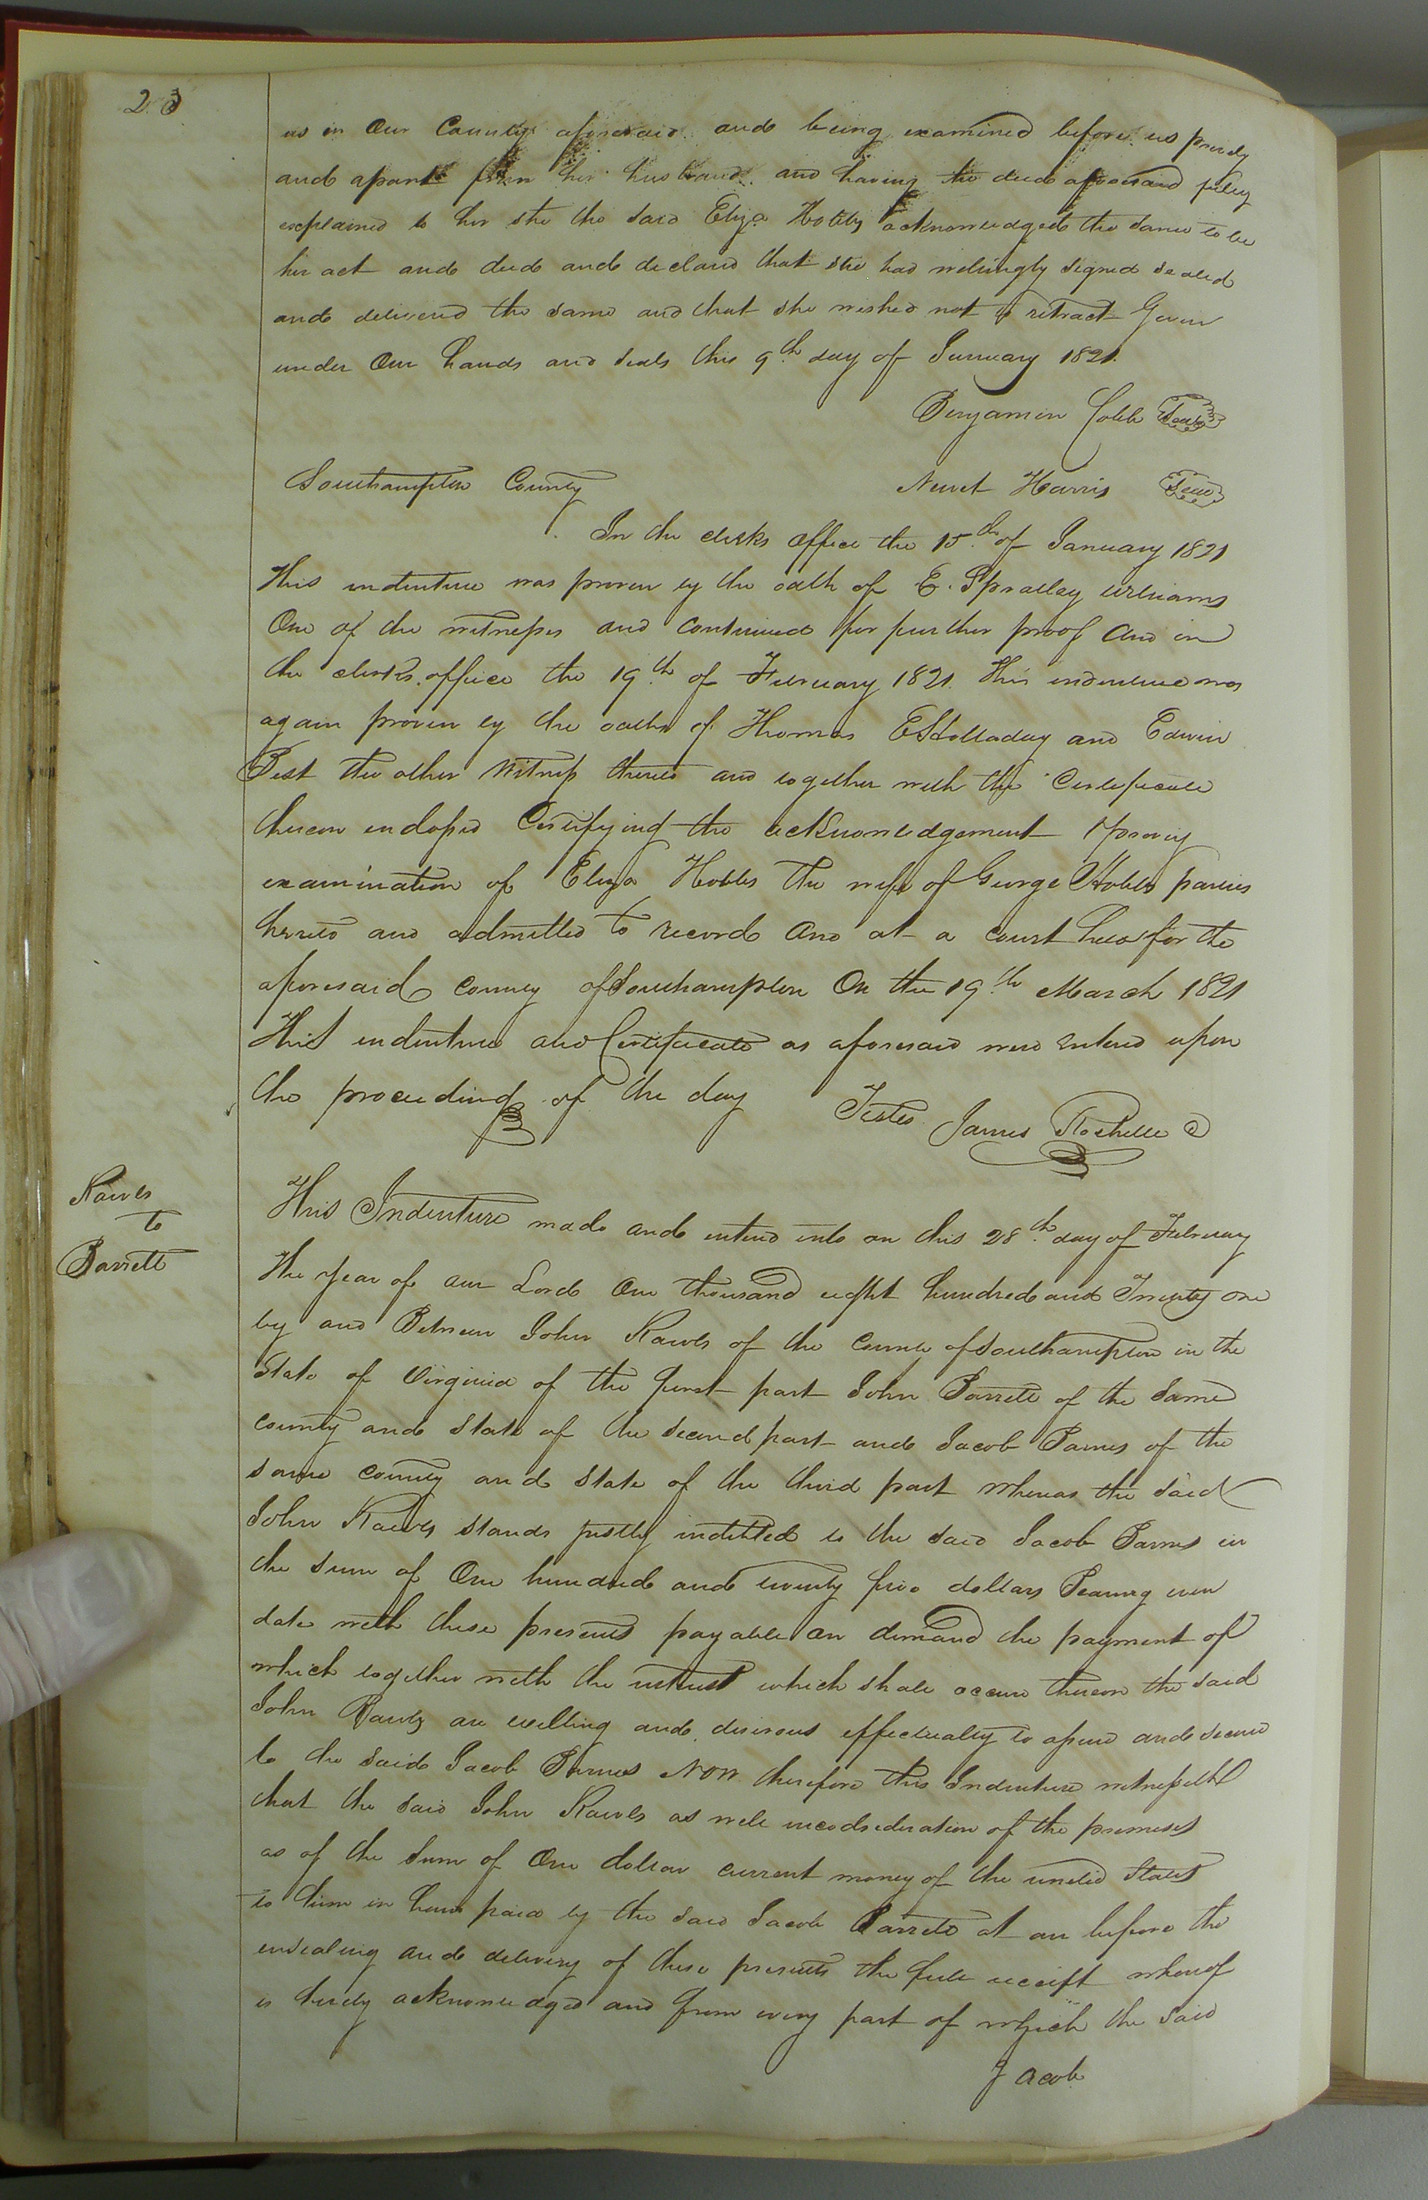 23
us in Our County aforesaid and being examined before us privily
and apart from her husband and having the deed aforesaid fully
explained to her she the said Eliza Hobbs acknowledged the same to be
her act and deed and declared that she had willingly signed sealed
and delivered the same and that she wished not to retract Given
under Our hands and seals this 9th day of January 1821.
Benjamin Cobb Seal
Southampton County Newit Harris Seal
In the clerks office the 15th of January 1821
This indenture was proven by the oath of E. Spratley Williams
One of the witnesses and continued for further proof And in
the clerks office the 19th of February 1821. This indenture was
again proven by the oaths of Thomas E Holladay and Edwin
Best the other Witness thereto and together with the Certificate
thereon endorsed Certifying the acknowledgement & privy
examination of Eliza Hobbs the wife of George Hobbs parties
hereto and admitted to record And at a court held for the
aforesaid county of Southampton On the 19th March 1821
This indenture and Certificate as aforesaid were entered upon
the proceedings of the day Teste James Rochelle C
Rawls
to
Barrett
This Indenture made and entered into on this 28th day of February
The year of our Lord One thousand eight hundred and Twenty one
by and Between John Rawls of the County of Southampton in the
State of Virginia of the first part John Barrett of the same
county and State of the second part and Jacob Barnes of the
same county and State of the third part whereas the said
John Rawls stands justly indebted to the said Jacob Barnes in
the sum of One hundred and twenty five dollars Bearing even
date with these presents payable on demand the payment of
which together with the interest which shall accrue thereon the said
John Rawls are willing and desirous effectually to asure and secure
to the said Jacob Barnes Now therefore this Indenture witnesseth
that the said John Rawls as well in consideration of the premises
as of the sum of One dollar current money of the united States
to him in hand paid by the said Jacob Barrett at or before the
ensealing and delivery of these presents the full receipt whereof
is hereby acknowledged and from every part of which the said
Jacob